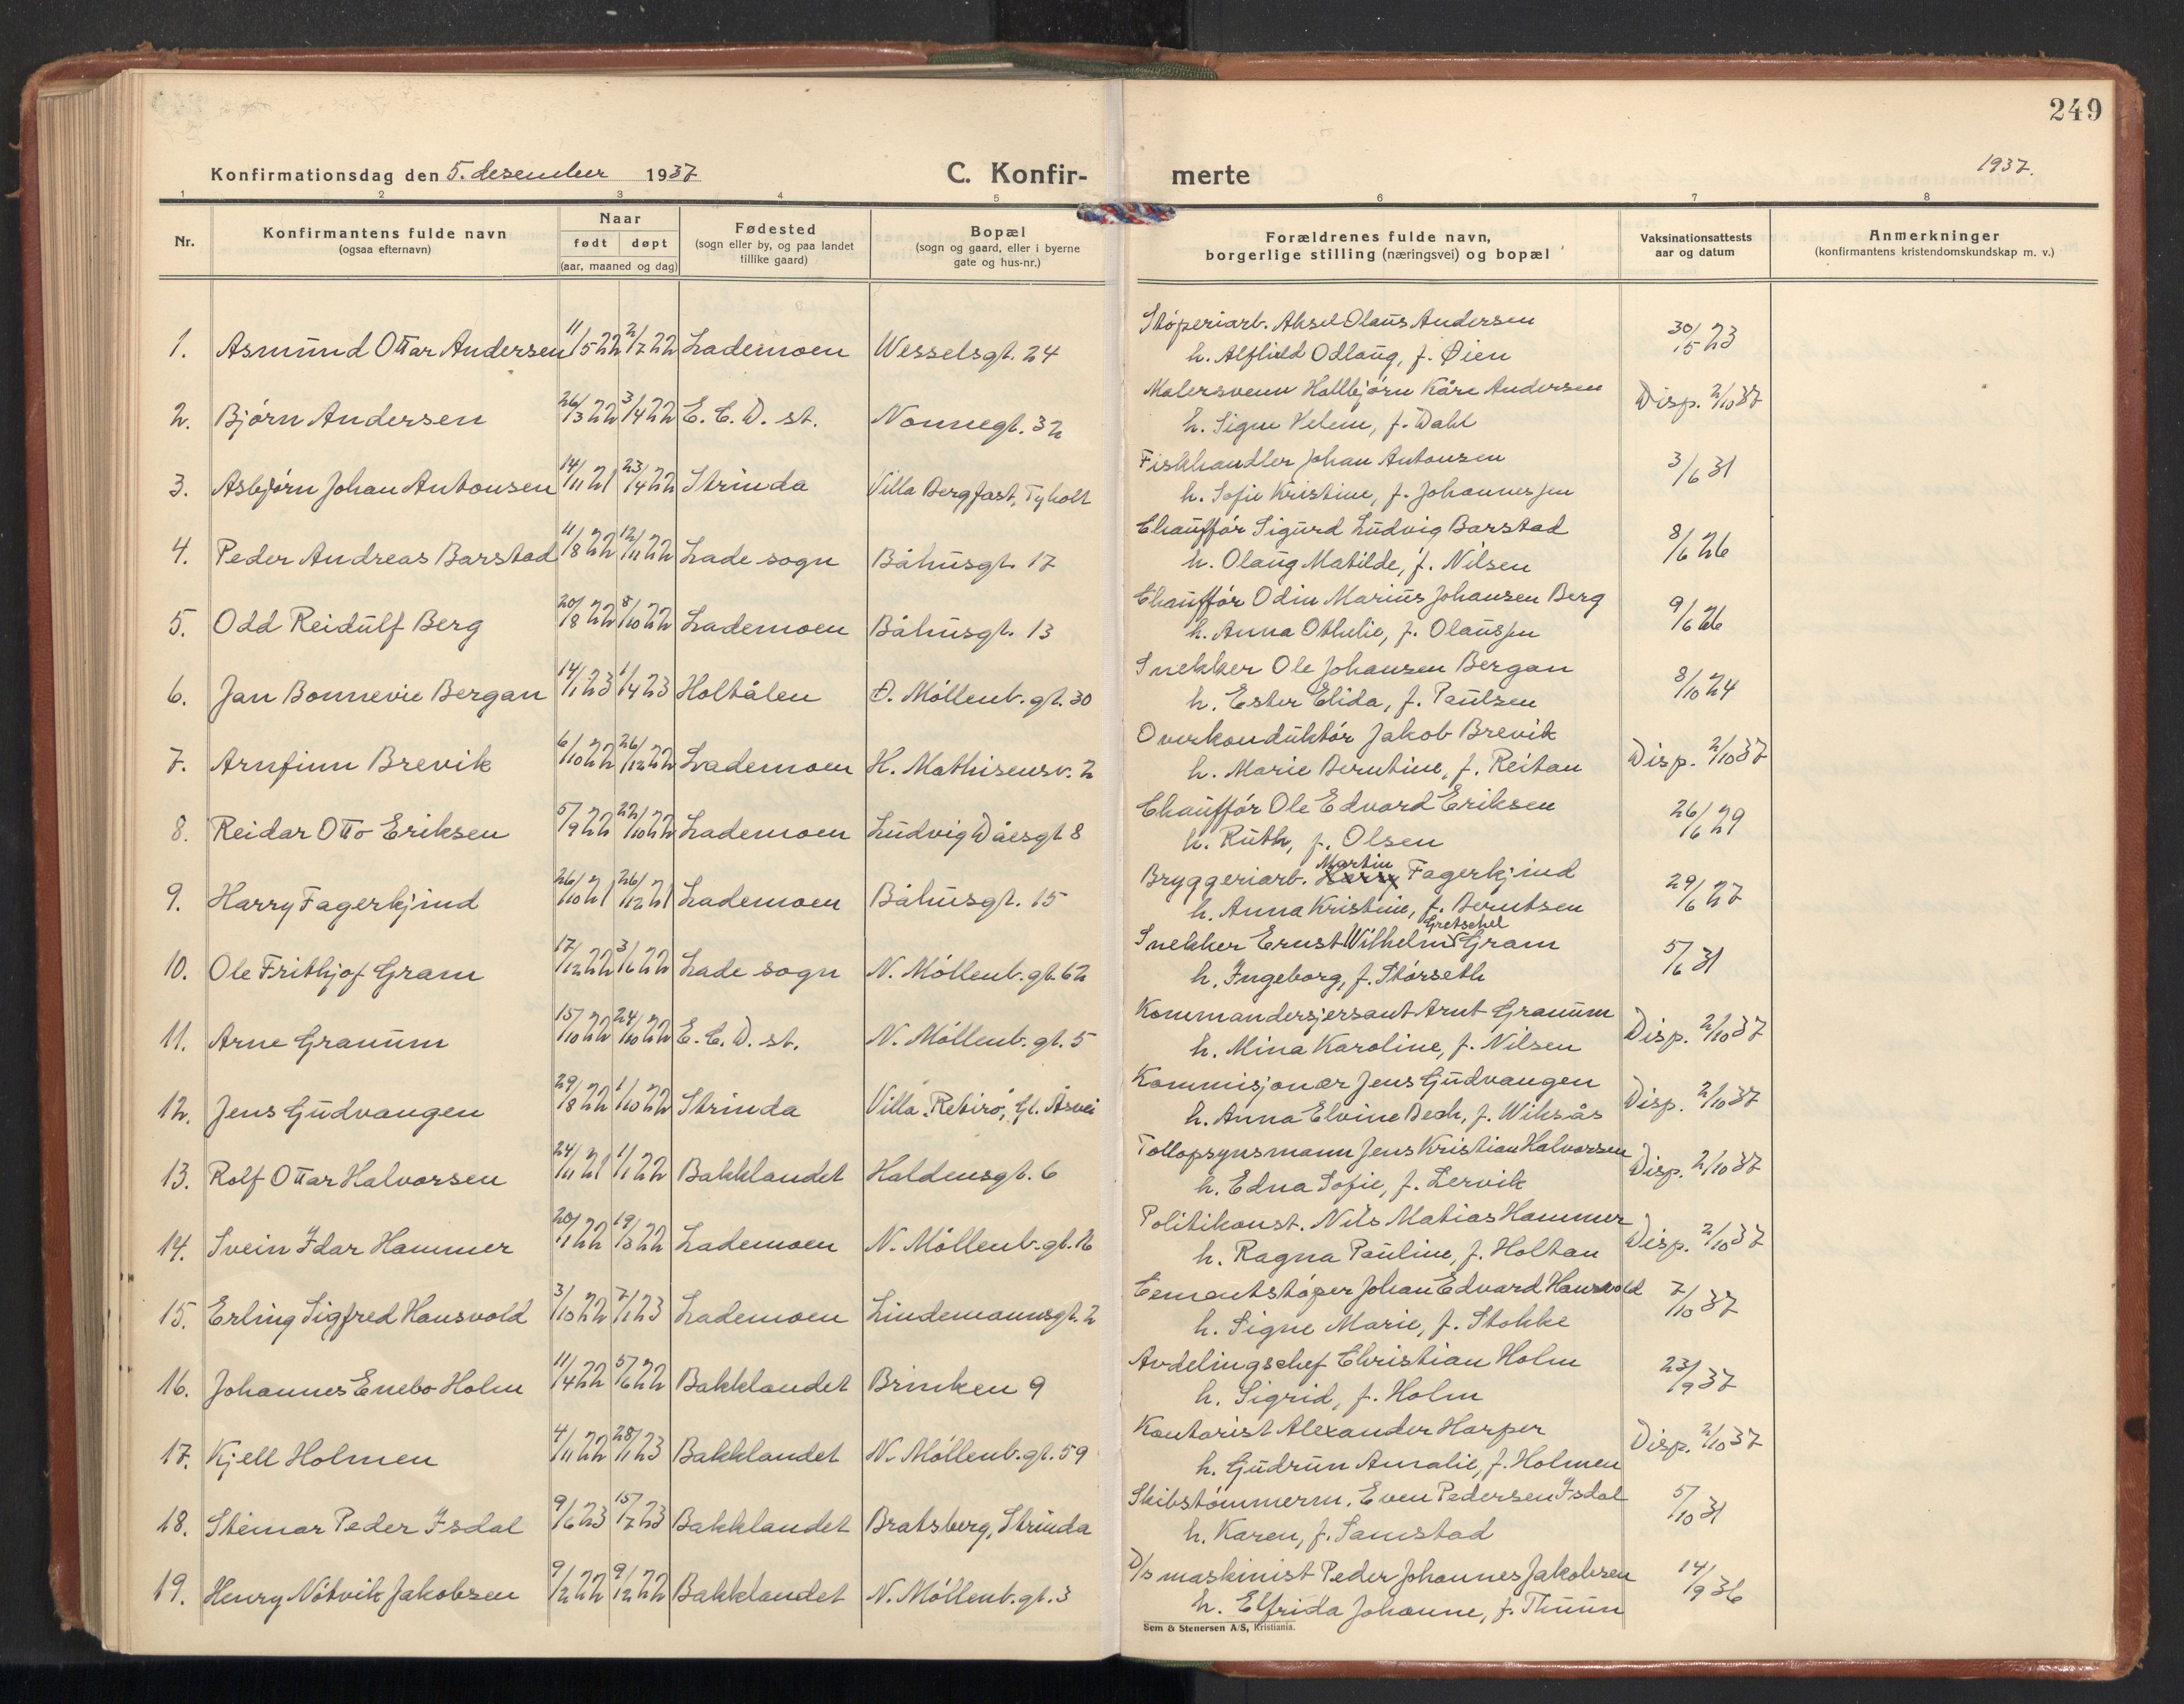 249
Konfirmationsdag den 5. desember 1937 C. Konfir- merte 1937.
1 2 3 4 5 6 7 8
Nr. Konfirmantens fulde navn (ogsaa efternavn) Naar født døpt (aar, maaned og dag) Fødested (sogn eller by, og paa landet tillike gaard) Bopæl (sogn og gaard, eller i byerne gate og hus-nr.) Forældrenes fulde navn, borgerlige stilling (næringsvei) og bopæl Vaksinationsattests aar og datum Anmerkninger (konfirmantens kristendomskundskap m. v.)
Støperiarb. Aksel Olaus Andersen
1. Asmund Ottar Andersen 11/5 22 2/7 22 Lademoen Wesselsgt. 24 h. Alfhild Odlaug, f. Øien 30/5 23
Malersvenn Hallbjørn Kåre Andersen
2. Bjørn Andersen 26/3 22 3/4 22 E. C. D. st. Nonnegt. 32 h. Signe Helene, f. Dahl Disp. 2/10 37
Fiskhandler Johan Antonsen
3. Asbjørn Johan Antonsen 14/11 21 23/4 22 Strinda Villa Bergfast, Tyholt h. Sofie Kristine, f. Johannessen 3/6 31
Chauffør Sigurd Ludvig Barstad
4. Peder Andreas Barstad 11/8 22 12/11 22 Lade sogn Båhusgt. 17 h. Olaug Matilde, f. Nilsen 8/6 26
Chauffør Odin Marius Johansen Berg
5. Odd Reidulf Berg 20/8 22 8/10 22 Lademoen Båhusgt. 13 h. Anna Othelie, f. Olaussen 9/6 26
Snekker Ole Johansen Bergan
6. Jan Bonnevie Bergan 14/1 23 1/4 23 Holtålen Ø. Møllenb. gt. 30 h. Ester Elida, f. Paulsen 8/10 24
Overkonduktør Jakob Brevik
7. Arnfinn Brevik 6/10 22 26/12 22 Lademoen H. Mathisensv. 2 h. Marie Berntine, f. Reitan Disp. 2/10 37
Chauffør Ole Edvard Eriksen
8. Reidar Otto Eriksen 5/9 22 22/10 22 Lademoen Ludvig Dåesgt 8 h. Ruth, f. Olsen 26/6 29
Bryggeriarb. Harry Martin Fagerkjind
9. Harry Fagerkjind 26/10 21 26/12 21 Lademoen Båhusgt. 15 h. Anna Kristine, f. Berntsen 29/6 27
Snekker Ernst Wilhelm Gretschel Gram
10. Ole Frithjof Gram 17/12 22 3/6 22 Lade sogn N. Møllenb. gt. 62 h. Ingeborg, f. Størseth 5/6 31
Kommandersjersant Arnt Granum
11. Arne Granum 15/10 22 24/10 22 E. C. D. st. N. Møllenb. gt. 5 h. Mina Karoline, f. Nilsen Disp. 2/10 37
Kommisjonær Jens Gudvangen
12. Jens Gudvangen 29/8 22 1/10 22 Strinda Villa "Retiro", Gl. Åsvei h. Anna Elvine Bech, f. Wiksås Disp. 2/10 37
Tollopsynsmann Jens Kristian Halvorsen
13. Rolf Ottar Halvorsen 24/11 21 1/1 22 Bakklandet Haldensgt. 6 h. Edna Sofie, f. Lervik Disp. 2/10 37
Politikonst. Nils Matias Hammer
14. Svein Idar Hammer 20/1 22 19/3 22 Lademoen N. Møllenb. gt. 16 h. Ragna Pauline, f. Holtan Disp. 2/10 37
Cementstøper Johan Edvard Hansvold
15. Erling Sigfred Hansvold 3/10 22 7/1 23 Lademoen Lindemannsgt. 2 h. Signe Marie, f. Stokke 7/10 37
Avdelingschef Christian Holm
16. Johannes Enebo Holm 11/4 22 5/6 22 Bakklandet Brinken 9 h. Sigrid, f. Holm 23/9 37
Kontorist Alexander Harper
17. Kjell Holmen 4/11 22 28/1 23 Bakklandet N. Møllenb. gt. 59 h. Gudrun Amalie, f. Holmen Disp. 2/10 37
Skibstømmerm. Even Pedersen Isdal
18. Steinar Peder Isdal 9/6 23 15/7 23 Bakklandet Bratsberg, Strinda h. Karen, f. Samstad 5/10 31
D/s maskinist Peder Johannes Jakobsen
19. Henry Nøtvik Jakobsen 9/2 22 9/12 22 Bakklandet N. Møllenb. gt. 3 h. Elfrida Johanne, f. Thuun 14/9 36
Sem & Stenersen A/S, Kristiania.